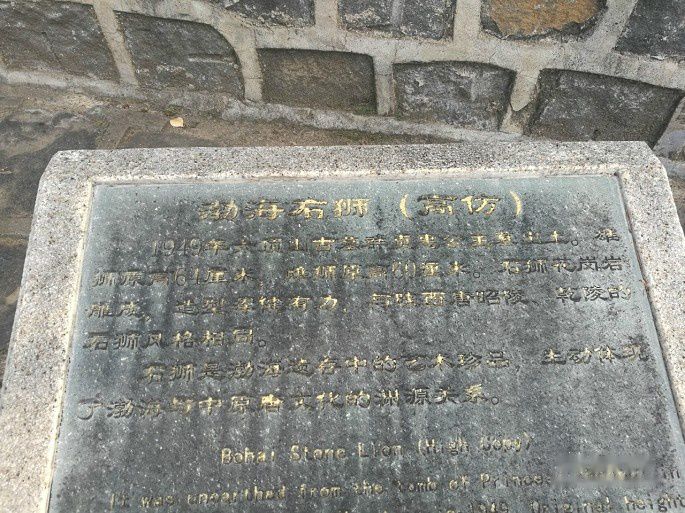 渤海石狮（高仿）
1949年六顶山古墓群贞惠公主墓出土。雄
狮原高64厘米，雌狮原高60厘米。石狮花岗岩
雕成，造型

有力，与陕西唐昭陵、乾陵的
石狮风格相同。
石狮是渤海遗存中的艺术珍品，生动体现
了渤海与中原唐文化的渊源关系。
Bohai Stone Lion (High Copy)
It was unearthed from the tomb of Princess in
1949. Original height